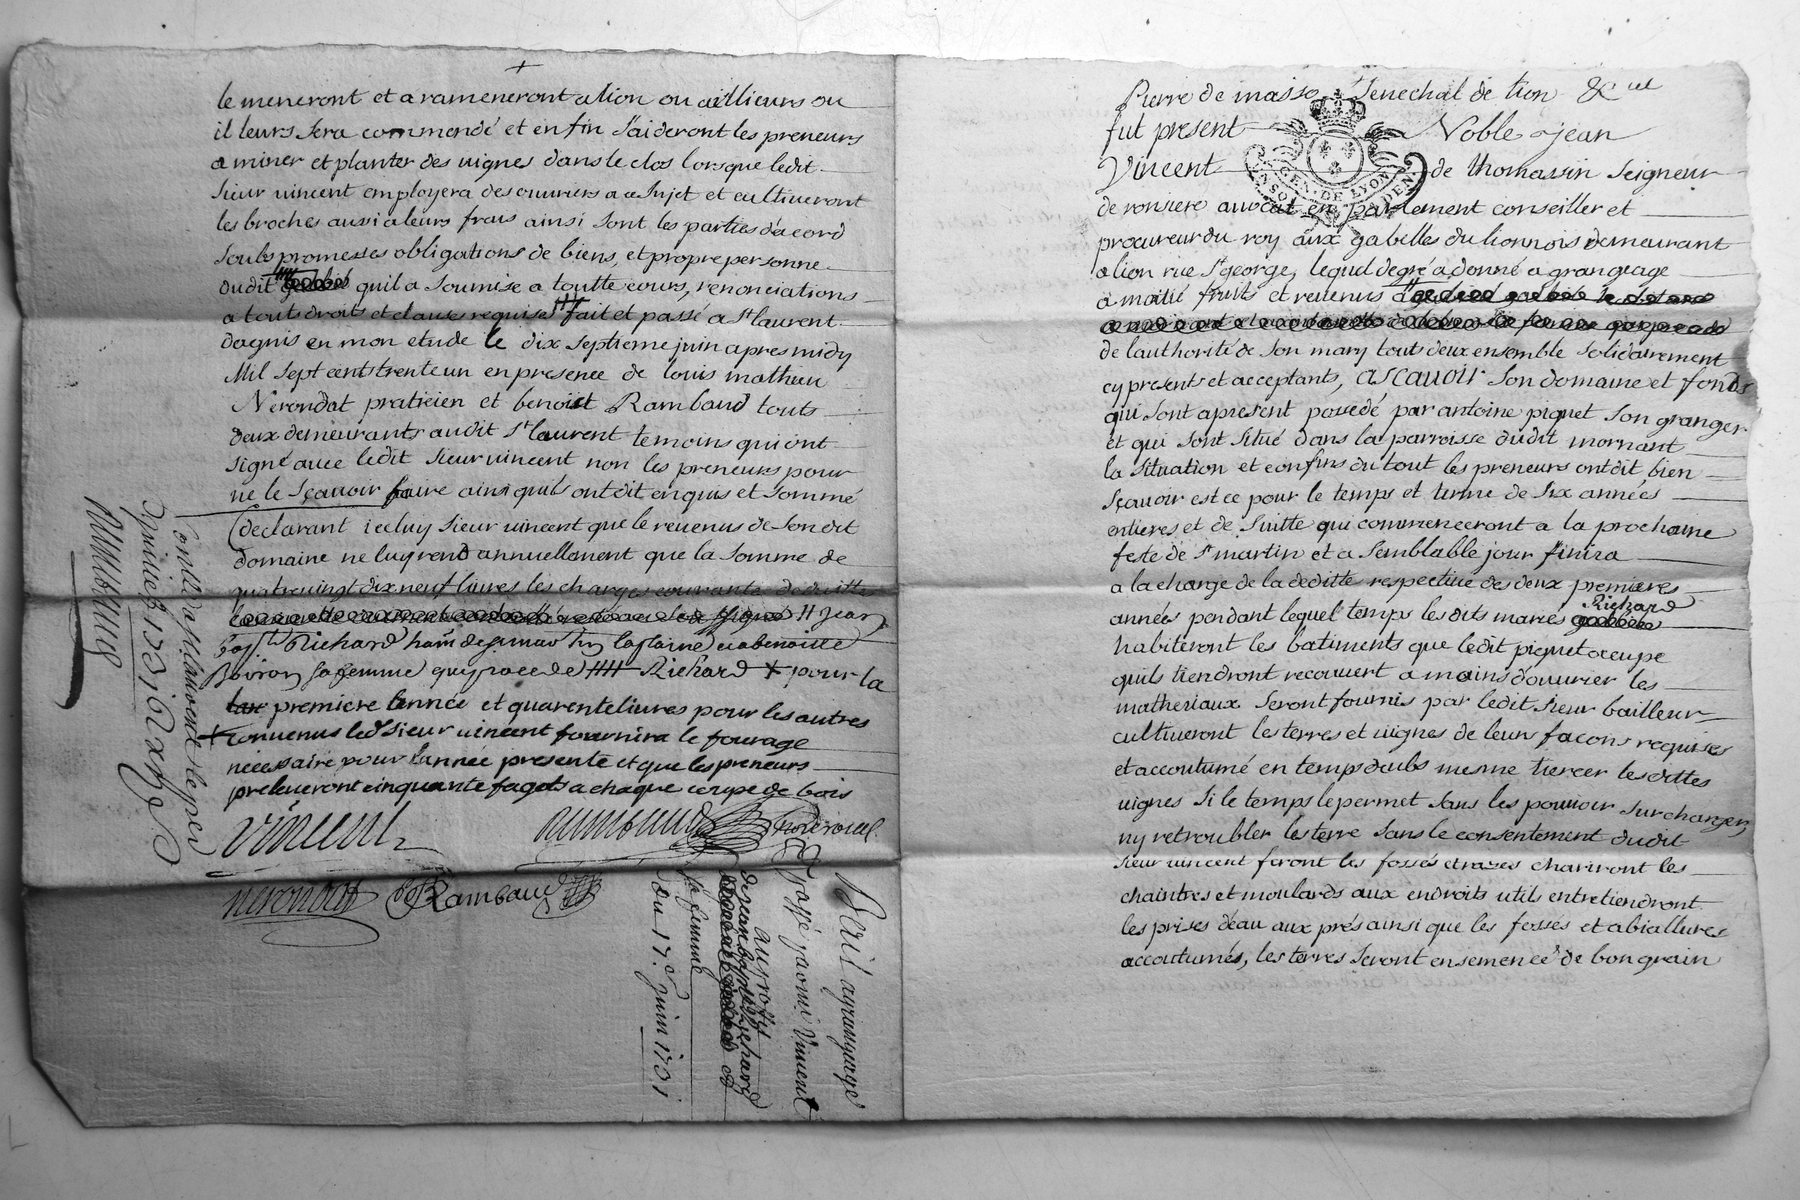 le meneront et a rameneront a lion ou aillieurs ou
il leurs sera commendé et enfin s'aideront les preneurs
a miner et planter des vignes dans le clos lorsque ledit
sieur vincent employera des ouvriers a ce sujet et cultiveront
les broches aussi a leurs frais ainsi sont les parties d'acord
soubs promesses obligations de biens, et propre personne
dudit quil a soumise a toutte cours, renonciations
a touts droits et clauses requises fait et passé a st laurent
dagnis en mon etude le dix septieme juin apres midy
Mil sept cents trente un en presence de louis mathieu
Nerondat praticien et benoist Rambaud touts
deux demeurants audit st laurent temoins qui ont
signé avec ledit sieur vincent non les preneurs pour
ne le sçavoir faire ainsi quils ont dit enquis et sommé
(declarant iceluy sieur vincent que le revenus de son dit
domaine ne luy rend annuellement que la somme de
quatre vingt dix neuf livres les charges courante deduittes
# jean
bapte Richard
sa femme Richard + pour la
premiere année et quarente livres pour les autres
+ convenus led sieur vincent fournira le fourage
necessaire pour l'année presente et que les preneurs
preleveront cinquante fagots a chaque coupe de bois
Vincent
Rambaud
nerondat B Rambaud
Bail a grangeage
passé par mr Vincent
de jean baptiste Richard
sa femme
du 17.e juin 1731
Pierre de masso senechal de lion &c
fut present Noble jean
Vincent de thomassin seigneur
GEN. DE LYON
de ronsiere avocat en parlement conseiller et
procureur du roy aux gabelles du lionnois demeurant
a lion rue st george, lequel de gré a donné a grangeage
a moitié fruits et revenus
de lauthorité de son mary touts deux ensemble solidairement
cy presents et acceptants, ascavoir son domaine et fonds
qui sont apresent possedé par antoine piquet son granger
et qui sont situé dans la parroisse dudit mornant
la situation et confins du tout les preneurs ont dit bien
sçavoir est ce pour le temps et terme de six années
entieres et de suitte qui commenceront a la prochaine
feste de st martin et a semblable jour finira
a la charge de la deditte respective des deux premieres
années pendant lequel temps lesdits mariés Richard
habiteront les batiments que ledit piquet occupe
quils tiendront recouvert a mains d'ouvrier les
matheriaux seront fournis par ledit sieur bailleur
cultiveront les terres et vignes de leurs facons requises
et accoutumé en temps deubs mesme tiercer lesdittes
vignes si le temps le permet sans les pouvoir surcharger
ny retroubler les terre sans le consentement dudit
sieur vincent feront les fossés et razes chariront les
chaintres et moulards aux endroits utils entretiendront
les prises d'eau aux prés ainsi que les fossés et abiallures
accoutumés, les terres seront ensemencés de bon grain